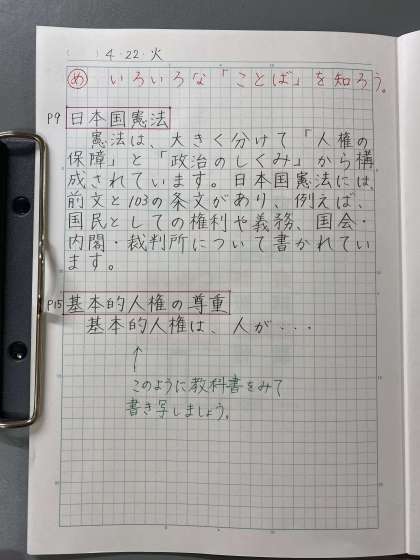 4・22・火
め いろいろな「ことば」を知ろう。
P9 日本国憲法
憲法は、大きく分けて「人権の
保障」と「政治のしくみ」から構
成されています。日本国憲法には、
前文と103の条文があり、例えば、
国民としての権利や義務、国会・
内閣・裁判所について書かれてい
ます。
P15 基本的人権の尊重
基本的人権は、人が・・・
↑
このように教科書をみて
書き写しましょう。